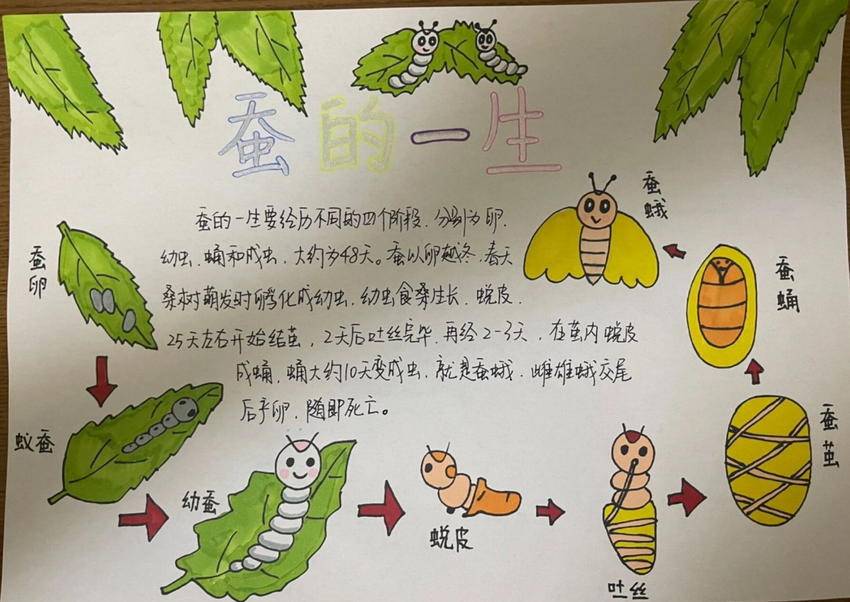 蚕的一生
蚕的一生要经历不同的四个阶段,分别为卵、
幼虫、蛹和成虫,大约为48天。蚕以卵越冬,春天
桑树萌发时孵化成幼虫,幼虫食桑生长、蜕皮、
25天左右开始结茧,2天后吐丝完毕,再经2-3天,在茧内蜕皮
成蛹,蛹大约10天变成虫,就是蚕蛾,雌雄蛾交尾
后产卵,随即死亡。
蚕卵
蚁蚕
幼蚕
蜕皮
吐丝
蚕茧
蚕蛹
蚕蛾